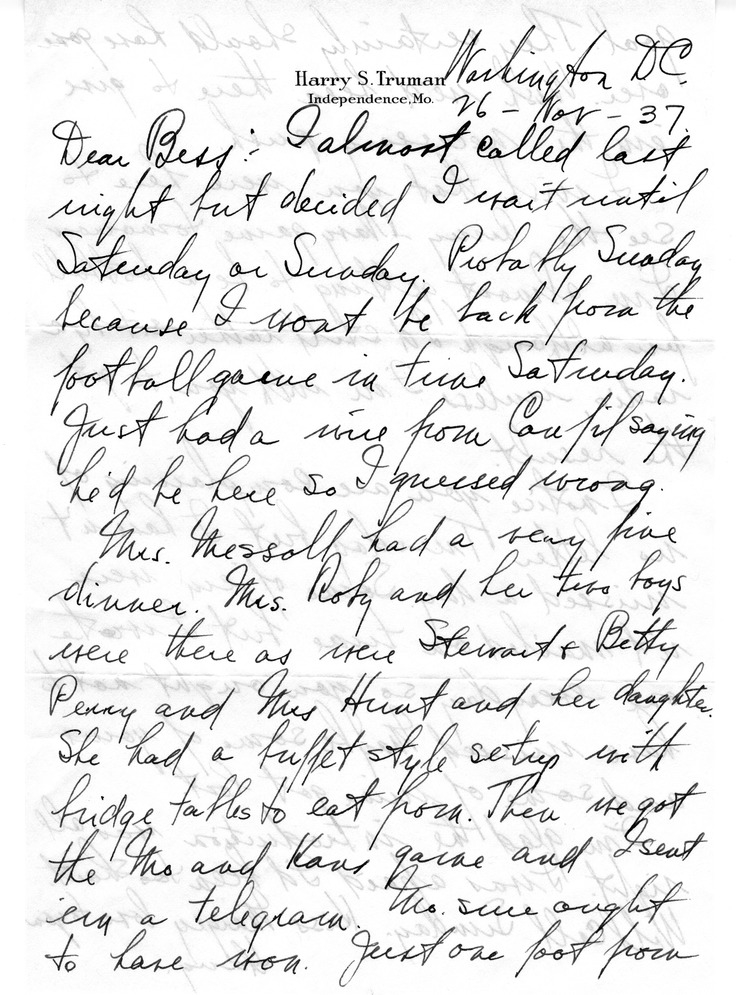 Harry S. Truman
Independence, Mo.
Washington DC.
26 - Nov - 37.
Dear Bess:- I almost called last
night but decided I wait until
Saturday or Sunday. Probably Sunday
because I wont be back from the
football game in time Saturday.
Just had a wire from Canfil saying
he'd be here so I guessed wrong.
Mrs. Messall had a very fine
dinner. Mrs. Roby and her two boys
were there as were Stewart & Betty
Perry and Mrs Hunt and her daughter.
She had a buffet style setup with
bridge tables to eat from. Then we got
the Mo and Kans game and I sent
em a telegram. Mo. sure ought
to have won. Just one foot from